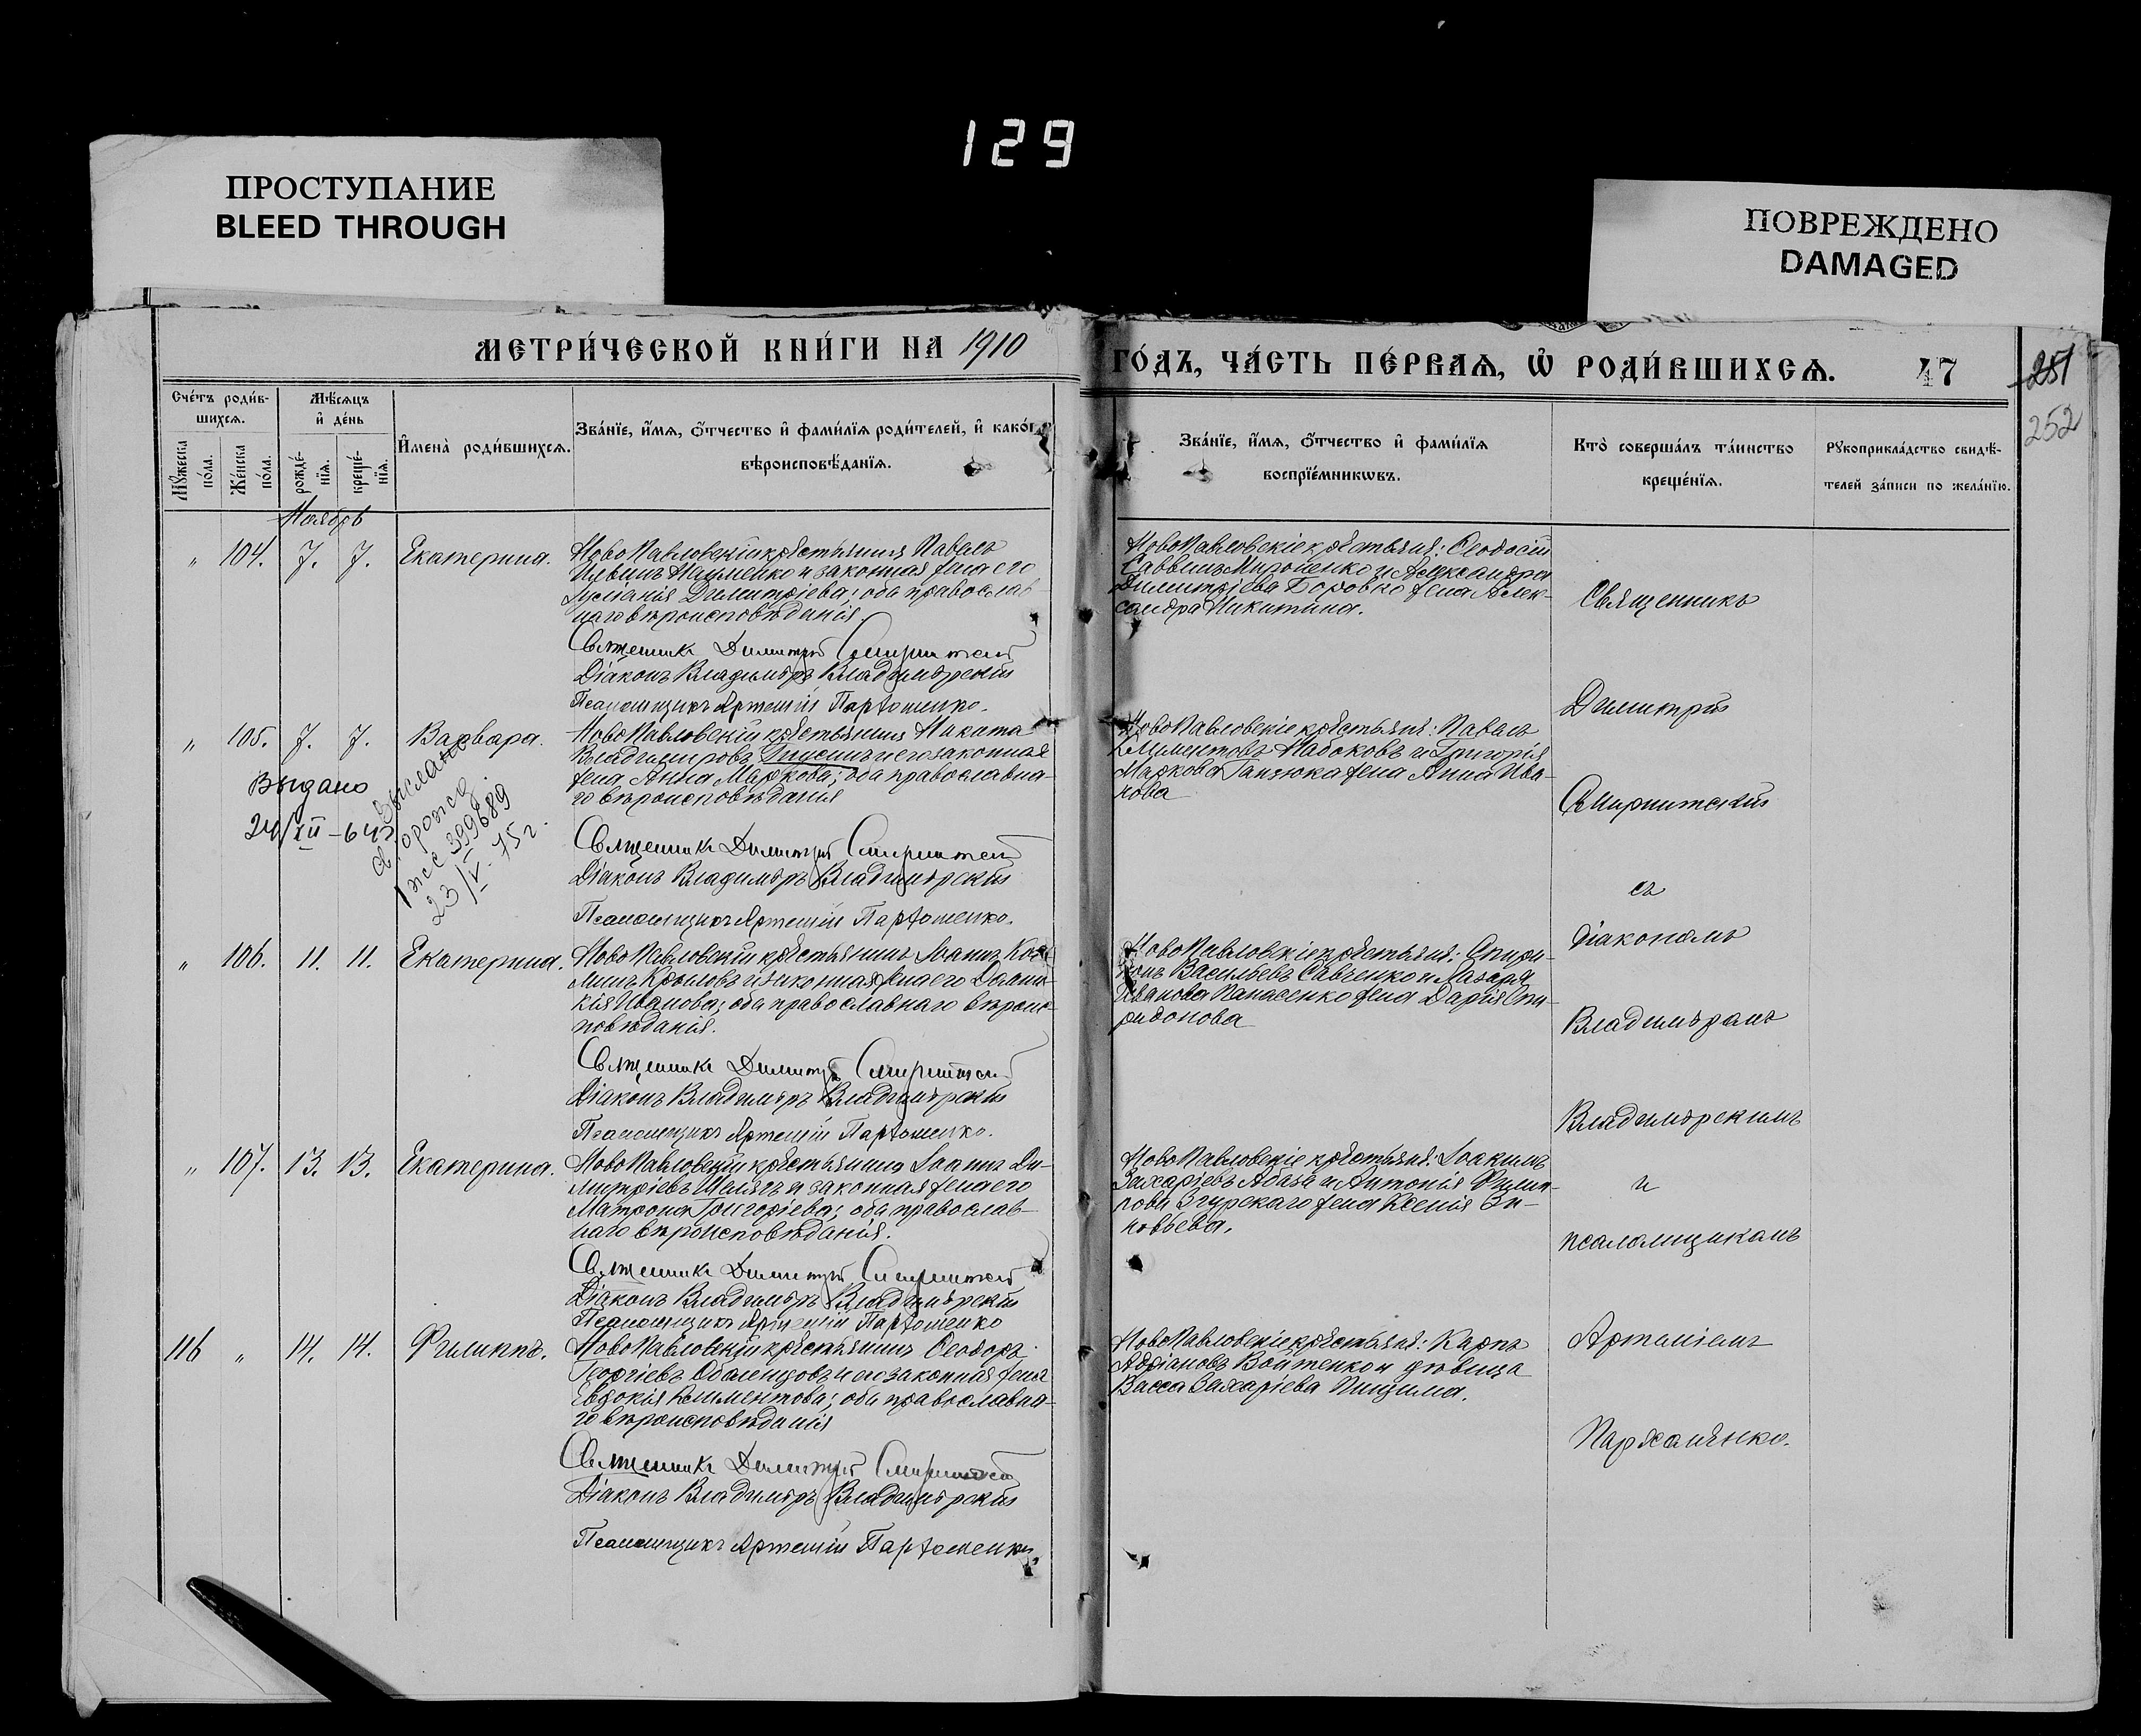 129
ПРОСТУПАНИЕ
BLEED THROUGH
ПОВРЕЖДЕНО
DAMAGED
МЕТРИ́ЧЕСКОЙ КНИ́ГИ НА 1910
ГО́ДЪ, ЧА́СТЬ ПЕ́РВАѦ, Ѡ҆ РОДИ́ВШИХСѦ. 47
251
252
Сче́тъ роди́в-
шихсѧ.
Мꙋ́жеска по́ла.
Же́нска по́ла.
Мѣ́сѧцъ
и҆ де́нь
рожде́-нїѧ.
креще́-нїѧ.
И҆мена̀ роди́вшихсѧ.
Зва́нїе, и҆́мѧ, ѻ҆́тчество и҆ фами́лїѧ роди́телей, и҆ како́гѡ
вѣроисповѣ́данїѧ.
Зва́нїе, и҆́мѧ, ѻ҆́тчество и҆ фами́лїѧ
воспрїе́мникѡвъ.
Кто̀ соверша́лъ та́инство
креще́нїѧ.
Рꙋкоприкла́дство свидѣ́-
телей за́писи по жела́нїю.
Ноябрь
„ 104. 7. 7. Екатерина.
НовоПавловскій крѣстьянинъ Павелъ
Науменко и законная жена его
Димитріева; оба православ-
наго вѣроисповѣданія.
Священникъ Димитрій
Діаконъ Владиміръ Владимірскій
Псаломщикъ Артемій Пархоменко.
НовоПавловскіе крѣстьяня: Ѳеодосій
Саввинъ Мироненко и Александра
Димитріева Боровко жена Алек-
сандра Никитина.
„ 105. 7. 7. Варвара.
НовоПавловскій крѣстьянинъ Никита
Владимировъ и его законная
жена Анна Маркова; оба православна-
го вѣроисповѣданія
Священникъ Димитрій
Діаконъ Владиміръ Владимірскій
Псаломщикъ Артемій Пархоменко.
НовоПавловскіе крѣстьяня: Павелъ
Климентовъ Набоковъ и Григорія
Маркова Ганзюка жена Анна Ива-
нова
Выдано
24/XII-64
Выслано
399689
23/V-75г.
„ 106. 11. 11. Екатерина.
НовоПавловскій крѣстьянинъ Іоаннъ Козь
минъ Крыловъ и законная жена его Домни-
кія Иванова; оба православнаго вѣроис-
повѣданія.
Священникъ Димитрій
Діаконъ Владиміръ Владимірскій
Псаломщикъ Артемій Пархоменко.
НовоПавловскіе крѣстьяня: Спири-
донъ Васильевъ Савченко и Лазаря
Иванова Панасенко жена Дарія Спи-
ридонова
„ 107. 13. 13. Екатерина.
НовоПавловскій крѣстьянинъ Іоаннъ Ди-
митріевъ и законная жена его
Матрона Григоріева; оба православ-
наго вѣроисповѣданія.
Священникъ Димитрій
Діаконъ Владиміръ Владимірскій
Псаломщикъ Артемій Пархоменко
НовоПавловскіе крѣстьяня: Іоакимъ
Захаріевъ Абаза и Антонія Филип-
пова Згурскаго жена Ксенія Зи-
новьева.
116 „ 14. 14. Филиппъ.
НовоПавловскій крѣстьянинъ Ѳеодоръ
Георгіевъ и его законная жена
Евдокія Климентова; оба православна-
го вѣроисповѣданія
Священникъ Димитрій
Діаконъ Владиміръ Владимірскій
Псаломщикъ Артемій Пархоменко.
НовоПавловскіе крѣстьяня: Карпъ
Адріановъ Войтенко и дѣвица
Васса Захаріева
Священникъ
Димитрій
съ
діакономъ
Владиміромъ
Владимірскимъ
и
псаломщикомъ
Артеміемъ
Пархоменко.